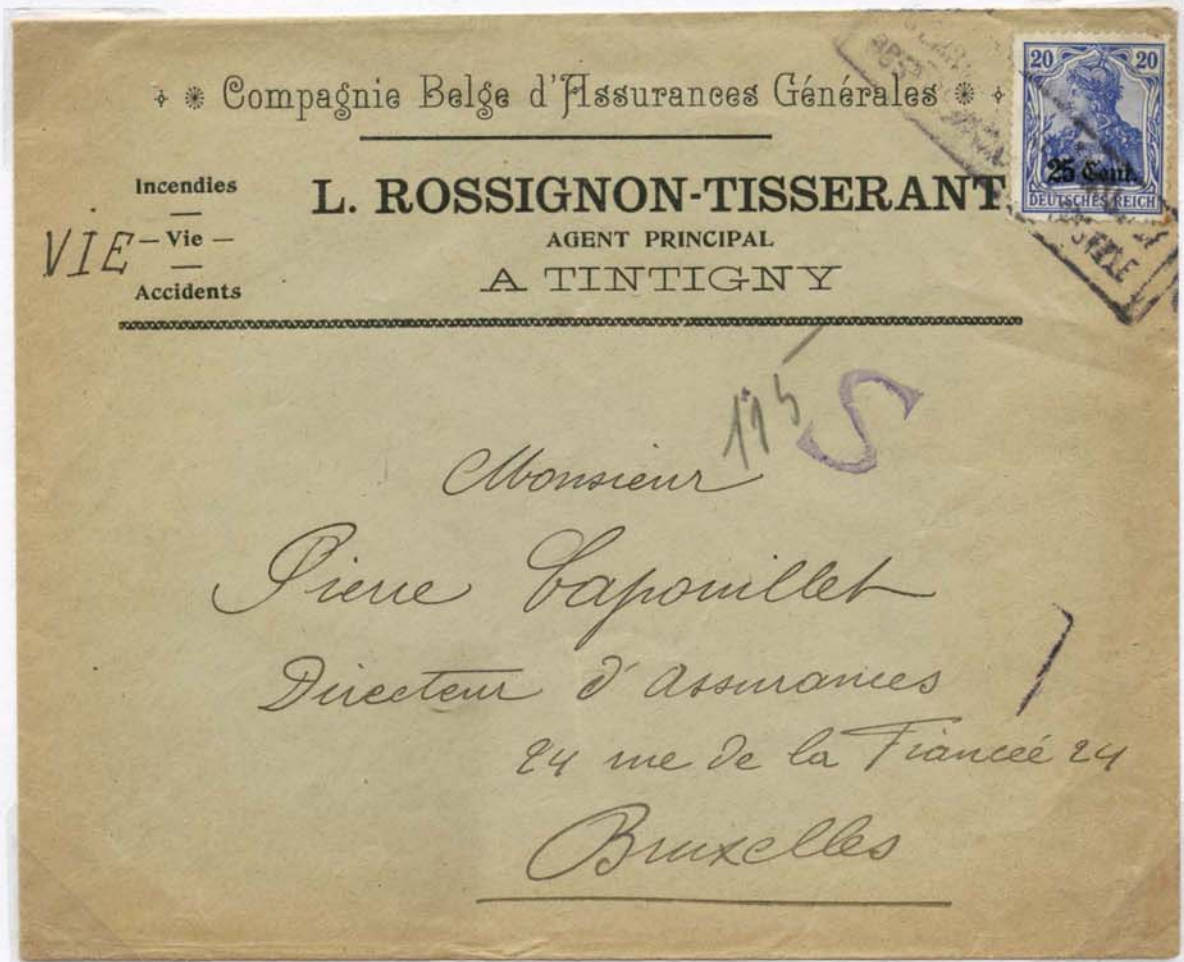 Compagnie Belge d'Assurances Générales
Incendies
Vie
Accidents
VIE
L. ROSSIGNON-TISSERANT
AGENT PRINCIPAL
A TINTIGNY
20 20
25 Cent.
DEUTSCHES REICH
115
S
Monsieur
Pierre Capouillet
Directeur d'assurances
24 rue de la Fianceé 24
Bruxelles